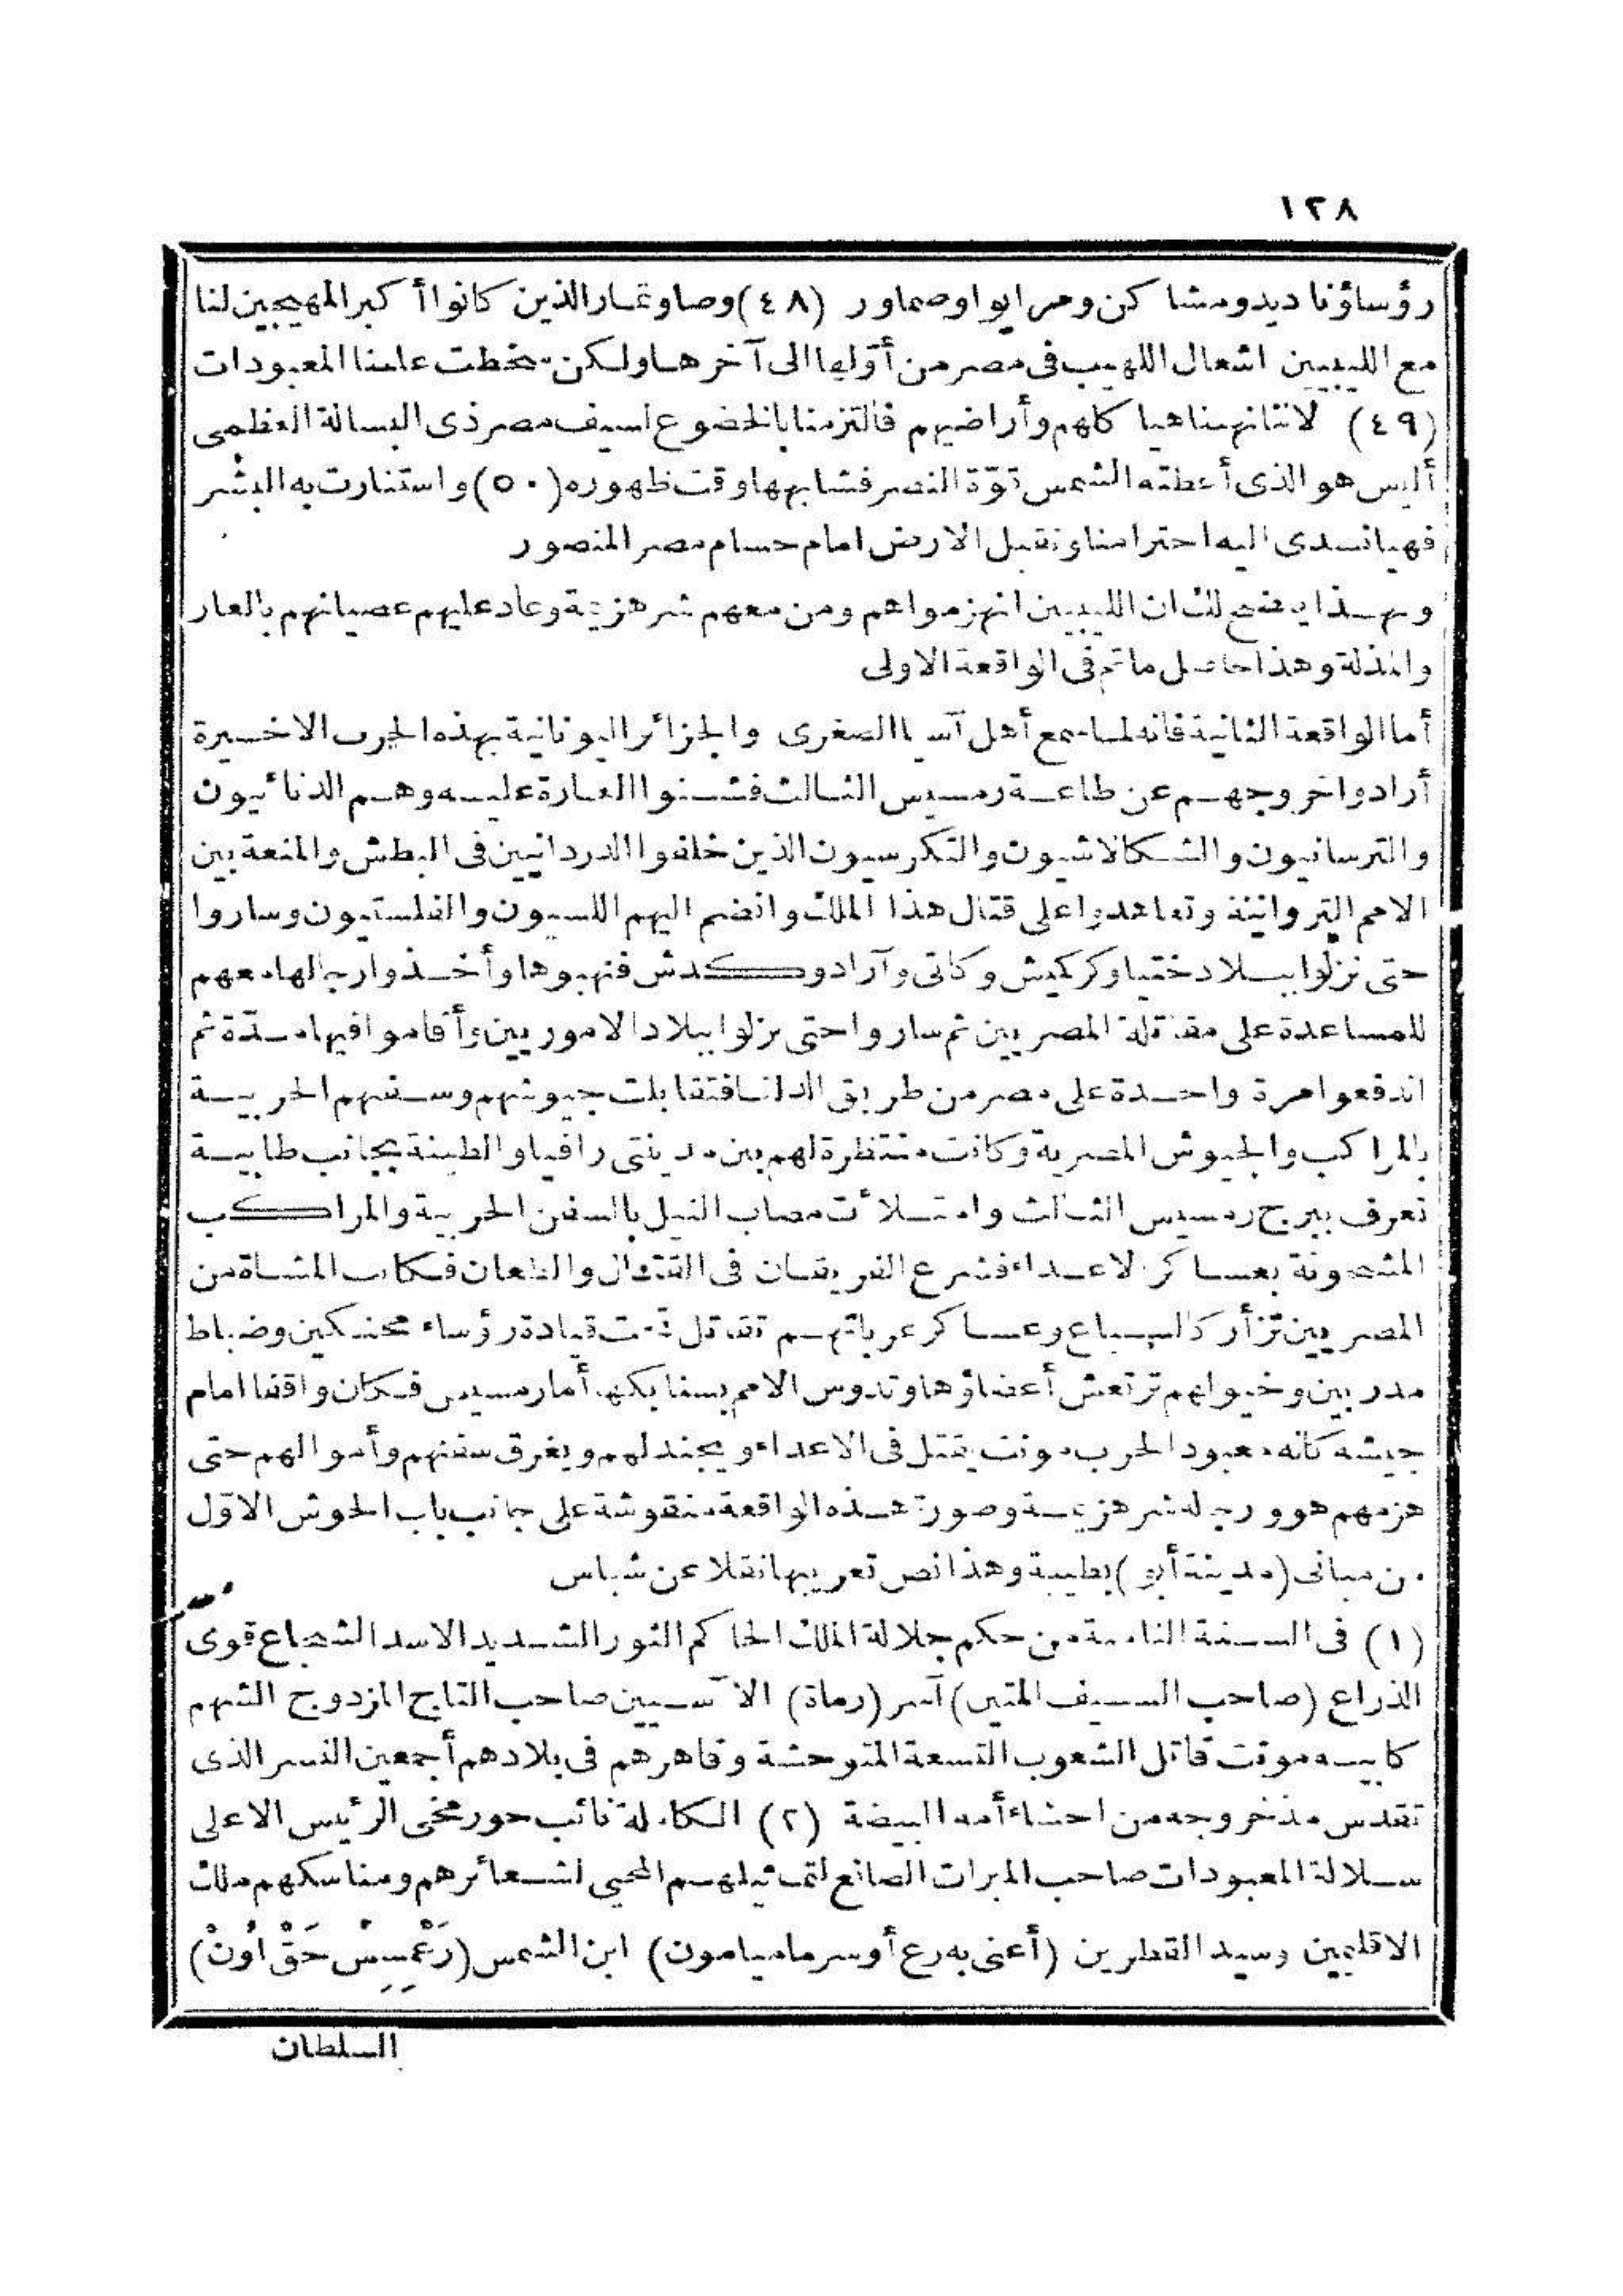 ١٢٨
رؤساؤنا ديدو ومشاكن ومرايو اوصماور (٤٨) وصاوتمار الذين كانوا أكبر المهيجين لنا
مع الليبيين اشعال اللهيب فى مصر من أوّلها الى آخرها ولكن سخطت علينا المعبودات
(٤٩) لاننا نهبنا هياكلهم وأراضيهم فالتزمنا بالخضوع لسيف مصر ذى البسالة العظمى
أليس هو الذى أعطته الشمس قوّة النصر فشابهها وقت ظهوره (٥٠) واستنارت به البشر
فهيا نسدى اليه احترامنا ونقبل الارض امام حسام مصر المنصور
وبهذا يتضح لك ان الليبيين انهزموا هم ومن معهم شر هزيمة وعاد عليهم عصيانهم بالعار
والمذلة وهذا حاصل ما تم فى الواقعة الاولى
أما الواقعة الثانية فانه لما سمع أهل آسيا الصغرى والجزائر اليونانية بهذه الحرب الاخيرة
أرادوا خروجهم عن طاعة رمسيس الثالث فشنوا الغارة عليه وهم الدنائيون
والترسانيون والشكالاشيون والتكرسيون الذين خلفوا الدردانيين فى البطش والمنعة بين
الامم التروانية وتعاهدوا على قتال هذا الملك وانضم اليهم اللسيون والفلستيون وساروا
حتى نزلوا ببلاد ختيا وكركميش وكاتى وآرادو وكدش فنهبوها وأخذوا رجالها معهم
للمساعدة على مقاتلة المصريين ثم ساروا حتى نزلوا ببلاد الاموريين وأقاموا فيها مدّة ثم
اندفعوا مرة واحدة على مصر من طريق الدلتا فتقابلت جيوشهم وسفنهم الحربية
بالمراكب والجيوش المصرية وكانت منتظرة لهم بين مدينتى رافيا والطينة بجانب طابية
تعرف ببرج رمسيس الثالث وامتلأت مصاب النيل بالسفن الحربية والمراكب
المشحونة بعساكر الاعداء فشرع الفريقان فى القتال والطعان فكانت المشاة من
المصريين تزأر كالسباع وعساكر عرباتهم تقاتل تحت قيادة رؤساء محنكين وضباط
مدربين وخيولهم ترتعش أعضاؤها وتدوس الامم بسنابكها أما رمسيس فكان واقفا امام
جيشه كأنه معبود الحرب مونت يقتل فى الاعداء ويجندلهم ويغرق سفنهم وأموالهم حتى
هزمهم هو ورجاله شر هزيمة وصورة هذه الواقعة منقوشة على جانب باب الحوش الاوّل
من مبانى (مدينة أبو) بطيبة وهذا نص تعريبها نقلا عن شباس
(١) فى السنة الثامنة من حكم جلالة الملك الحاكم الثور الشديد الاسد الشجاع قوى
الذراع (صاحب السيف المتين) آسر (رماة) الآسيين صاحب التاج المزدوج الشهم
كابيه مونت قاتل الشعوب التسعة المتوحشة وقاهرهم فى بلادهم أجمعين النسر الذى
تقدس منذ خروجه من احشاء أمه البيضة (٢) الكاملة نائب حور مخى الرئيس الاعلى
سلالة المعبودات صاحب المبرات الصانع لتماثيلهم المحيى لشعائرهم ومناسكهم ملك
الاقليمين وسيد القطرين (أعنى به رع أوسرما ميامون) ابن الشمس (رَعْمِسِسْ حَقْ اُونْ)
السلطان